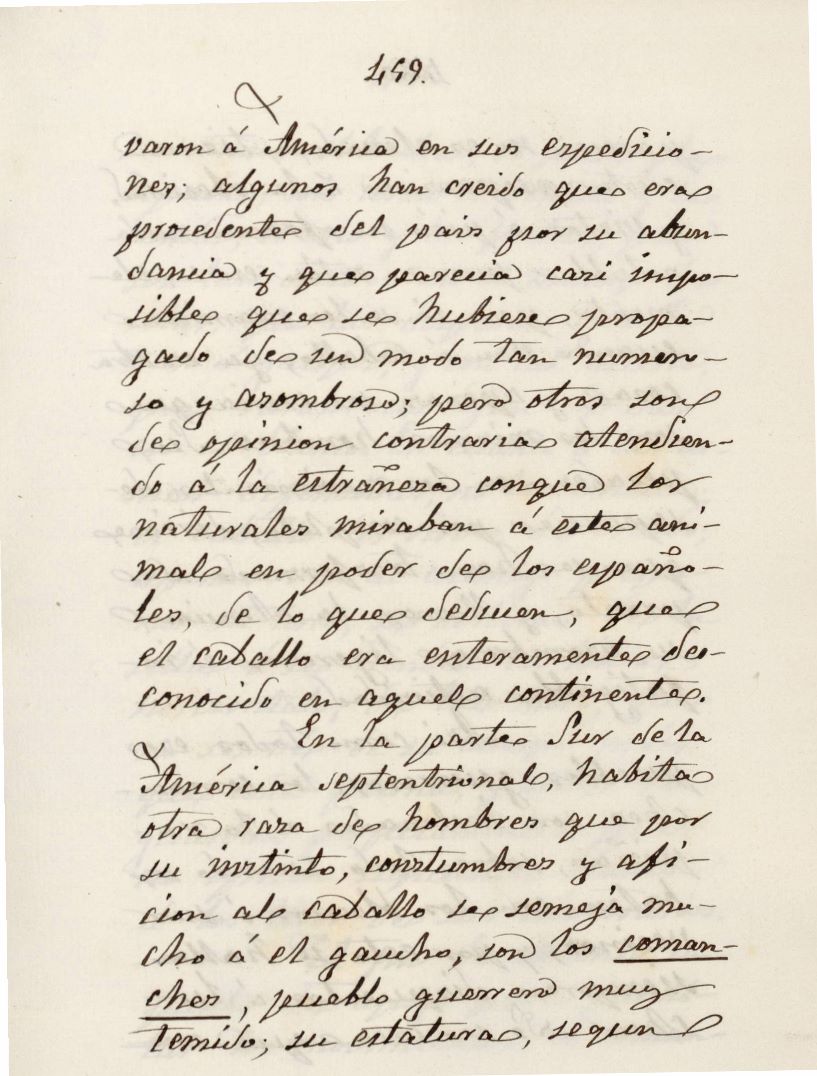 459.
varon á América en sus espedicio-
nes; algunos han creido que era
procedente del pais por su abun-
dancia y que parecia casi impo-
sible que se hubiese propa-
gado de un modo tan numero-
so y asombroso; pero otros son
de opinion contraria atendien-
do á la estrañeza conque los
naturales miraban á este ani-
mal en poder de los españo-
les, de lo que deducen, que
el caballo era enteramente des-
conocido en aquel continente.
En la parte Sur de la
América septentrional, habita
otra raza de hombres que por
su instinto, constumbres y afi-
cion al caballo se semeja mu-
cho á el gaucho, son los coman-
ches, pueblo guerrero muy
temido; su estatura, segun